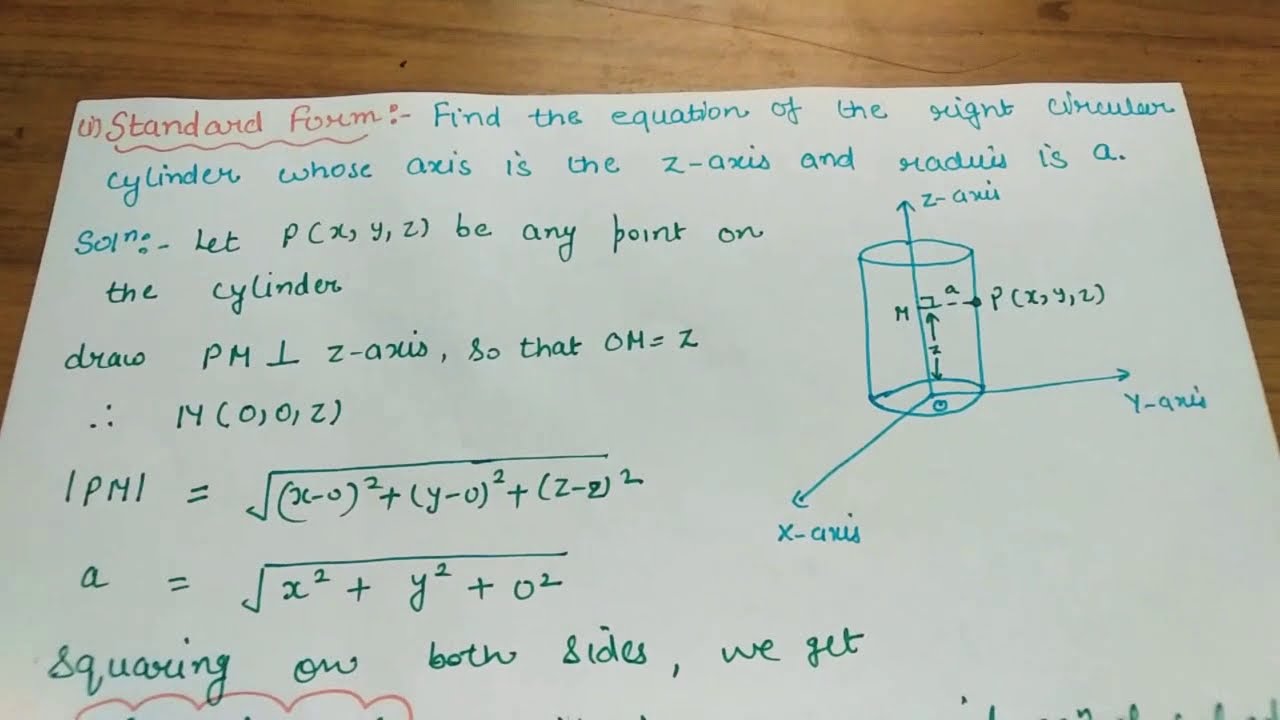 (i) Standard Form:- Find the equation of the right circular
cylinder whose axis is the z-axis and raduis is a.
Solⁿ:- Let P(x, y, z) be any point on
the cylinder
draw PM ⊥ z-axis, so that OM = z
∴ M(0, 0, z)
|PM| = √(x-0)²+(y-0)²+(z-z)²
a = √x² + y² + 0²
Squaring on both sides, we get
z-axis
a
M
P(x, y, z)
z
O
Y-axis
X-axis